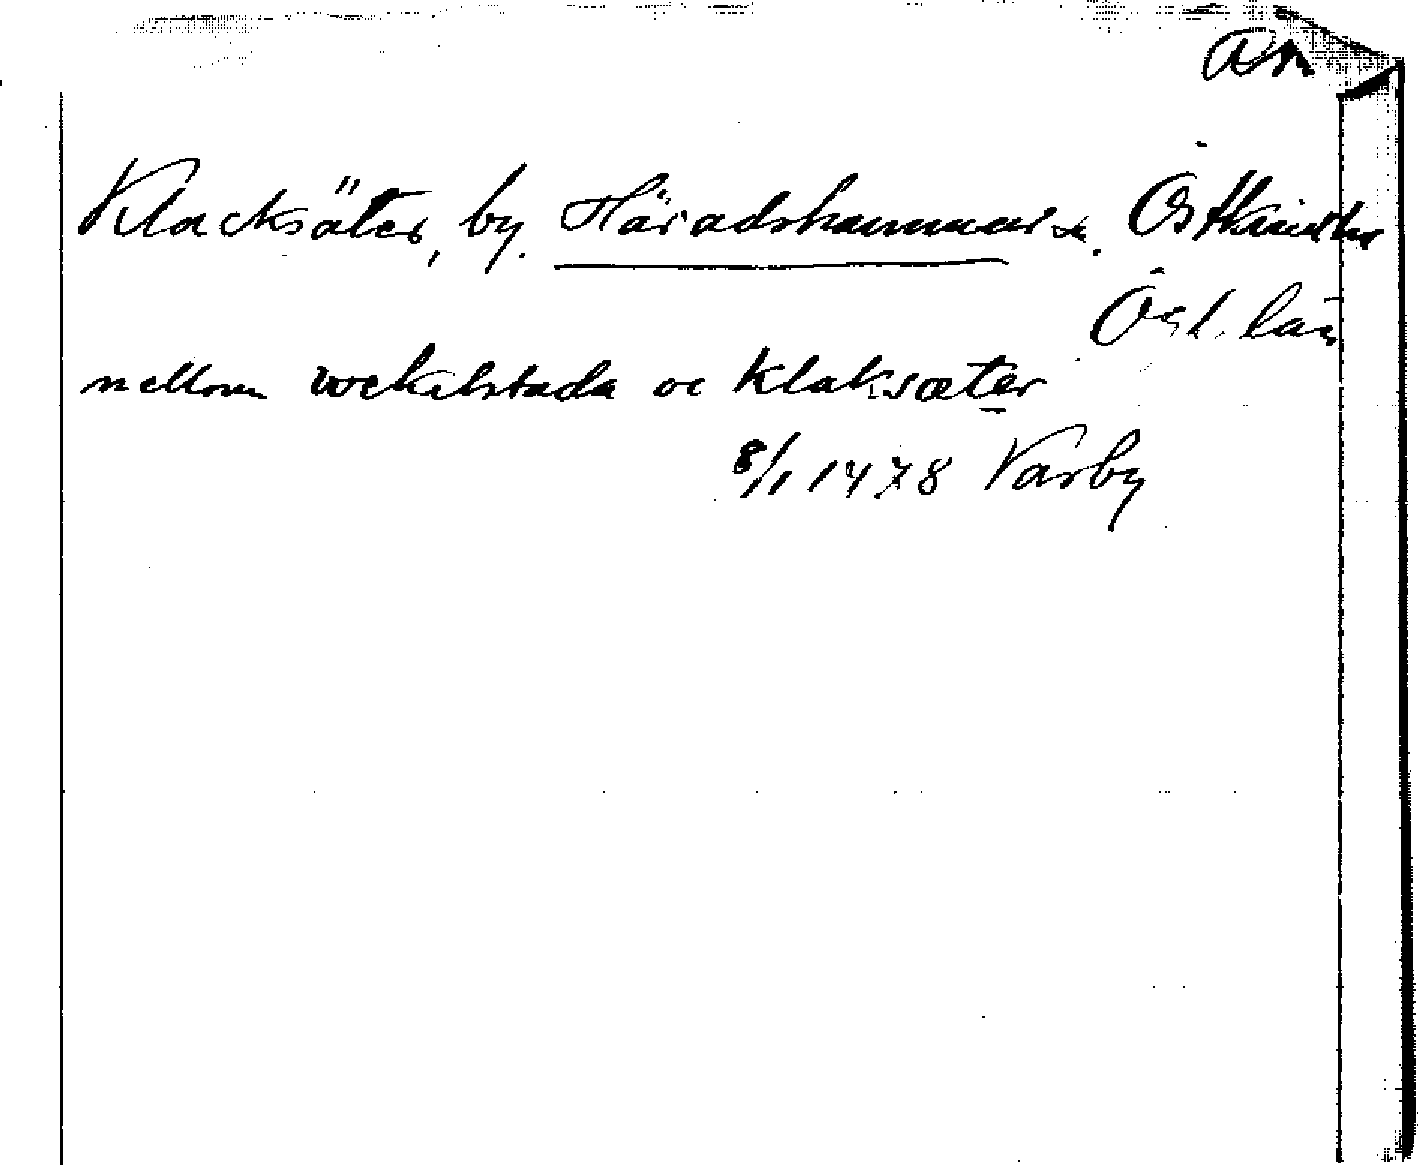 Klacksäter, by. Häradshammar sn. Östkinds hd
Östg. län
mellom wekilstada oc klaksæter
8/1 1478 Varby